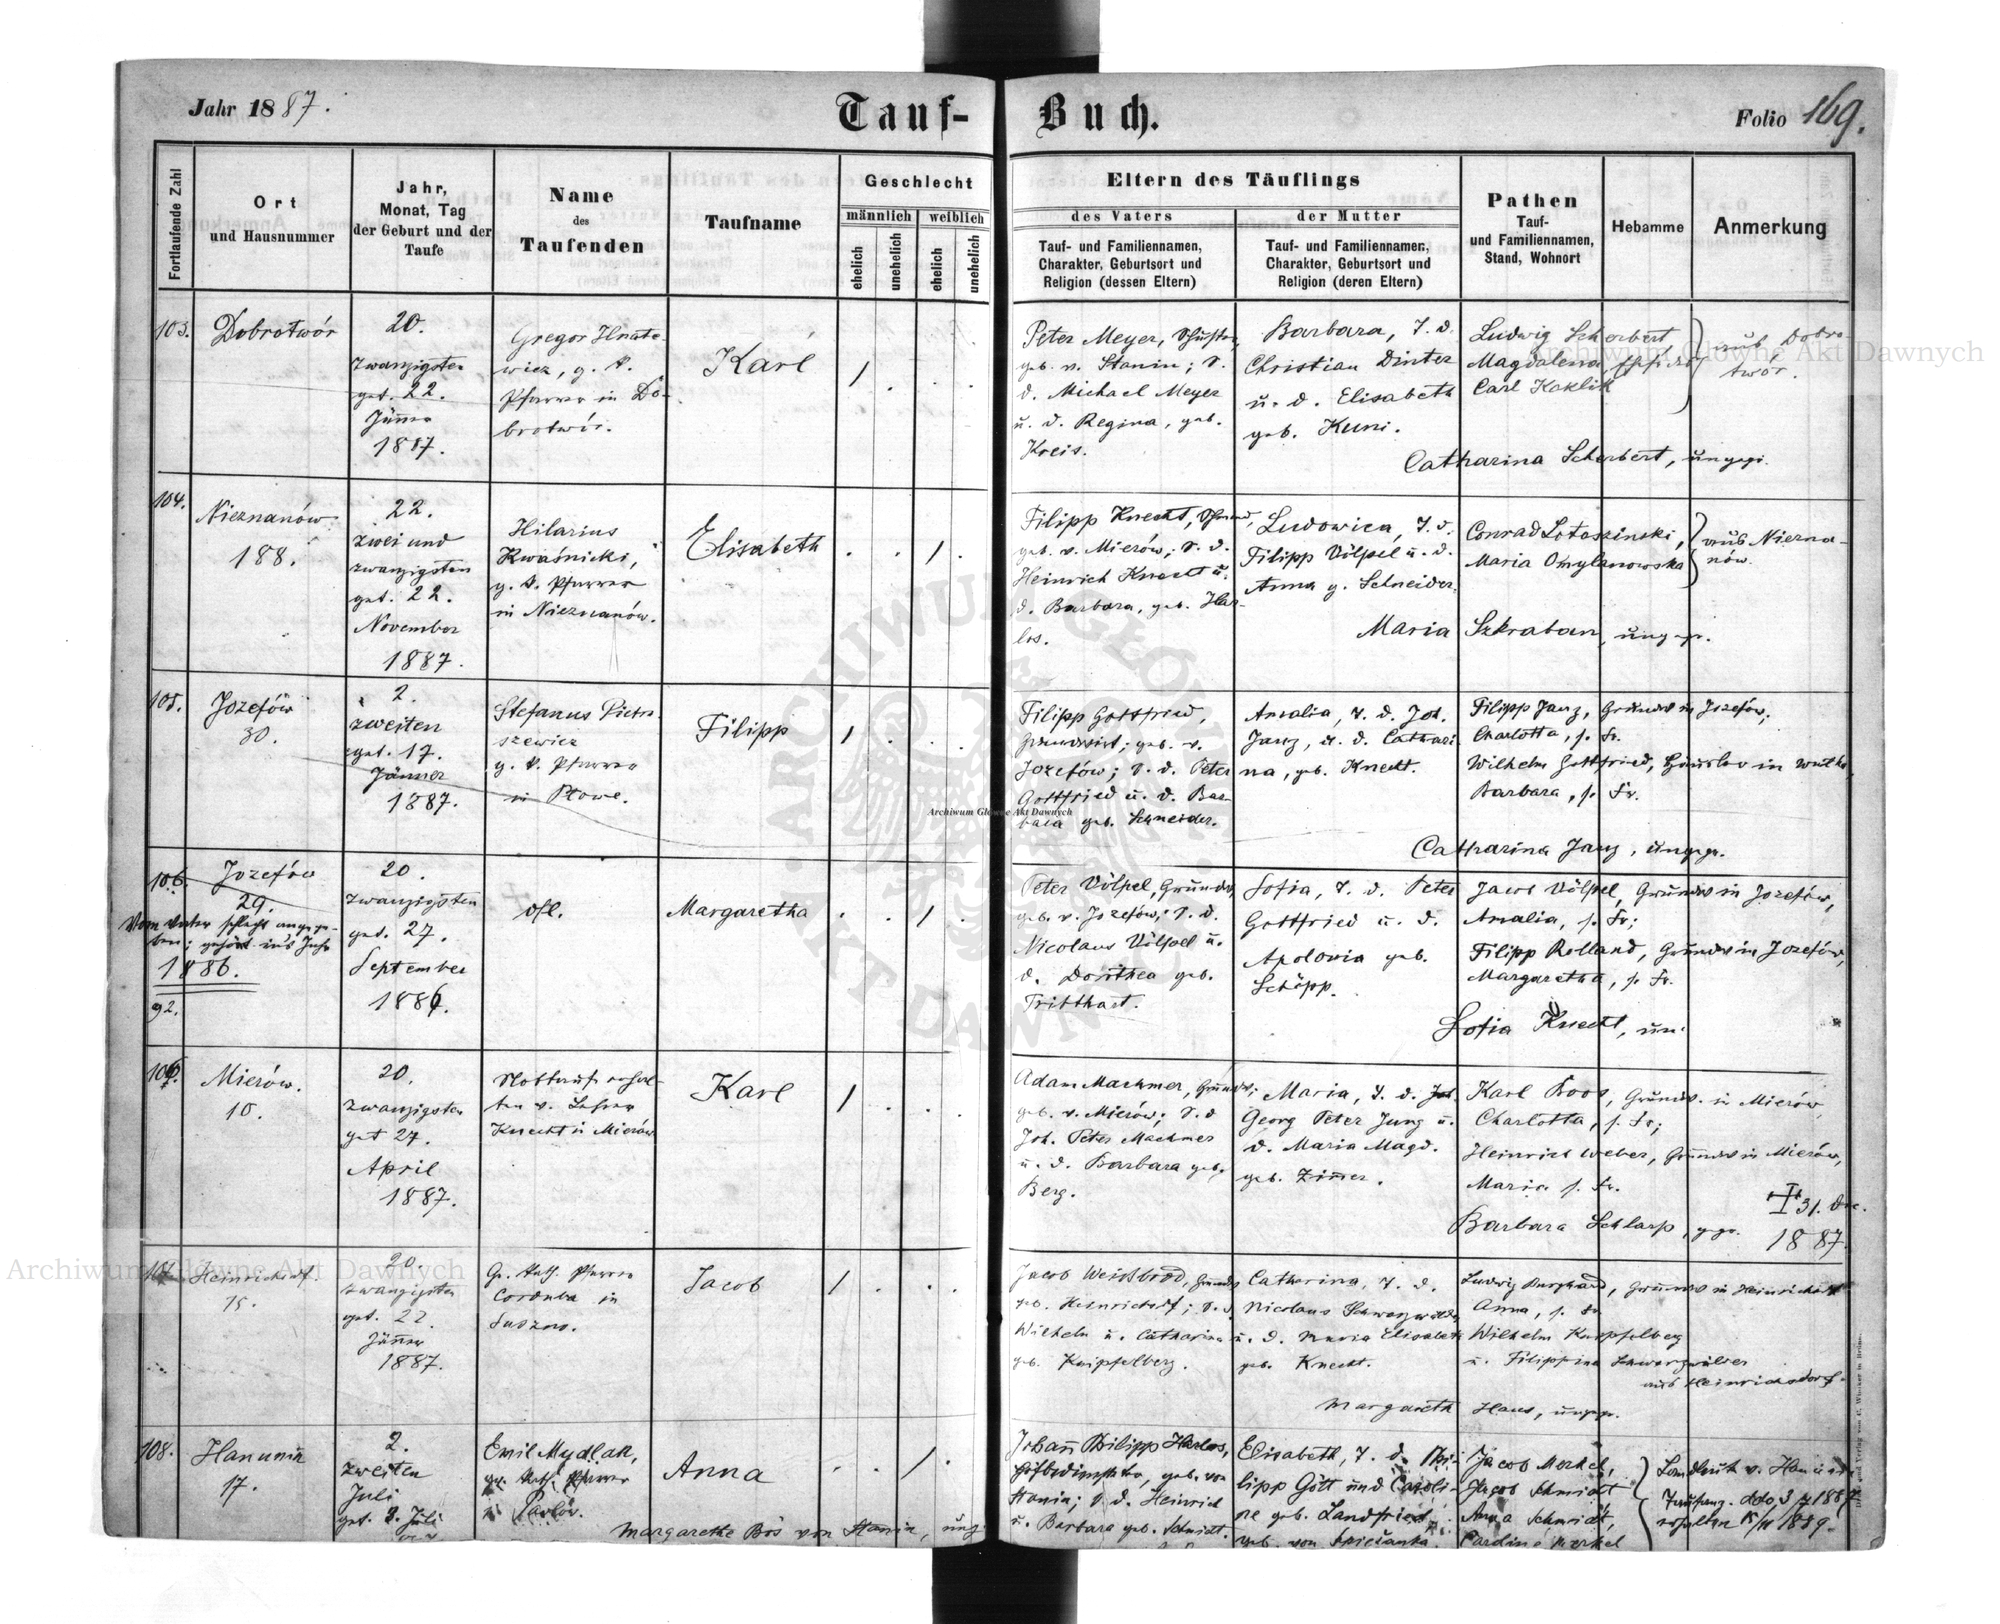 Jahr 1887.
Tauf-Buch.
Folio 169.
Fortlaufende Zahl
Ort
und Hausnummer
Jahr,
Monat, Tag
der Geburt und der
Taufe
Name
des
Taufenden
Taufname
Geschlecht
männlich
weiblich
ehelich
unehelich
ehelich
unehelich
Eltern des Täuflings
des Vaters
der Mutter
Tauf- und Familiennamen,
Charakter, Geburtsort und
Religion (dessen Eltern)
Tauf- und Familiennamen,
Charakter, Geburtsort und
Religion (deren Eltern)
Pathen
Tauf-
und Familiennamen,
Stand, Wohnort
Hebamme
Anmerkung
103.
Dobrotwór
20.
zwanzigsten
get. 22.
Jänner
1887.
Gregor Hnate-
wicz, g. k.
Pfarrer in Do-
brotwór.
Karl
Peter Meyer, Schuster,
geb. v. Stanin; S.
d. Michael Meyer
u. d. Regina, geb.
Kreis.
Barbara, T. d.
Christian Dinter
u. d. Elisabeth
geb. Kuni.
Ludwig Scherbert
Magdalena
Carl Koklik
aus Dobro
twór.
Catharina Scherbert, ungepr.
104.
Nieznanów
188.
22.
zwei und
zwanzigsten
get. 22.
November
1887.
Hilarius
Kwaśnicki,
g. k. Pfarrer
in Nieznanów.
Elisabeth
Filipp Knecht,
geb. v. Mierów; S. d.
Heinrich Knecht u.
d. Barbara, geb. Har-
los.
Ludowica, T. d.
Filipp Völpel u. d.
Anna g. Schneider.
Conrad Lotoszinski,
Maria Omylanowska
aus Niezna-
nów.
Maria Szkraban, ungepr.
105.
Jozefów
30.
2.
zweiten
get. 17.
Jänner
1887.
Stefanus Pietru-
szewicz
g. k. Pfarrer
in Płowe.
Filipp
Filipp Gottfried,
Grundwirt; geb. v.
Jozefów; S. d. Peter
Gottfried u. d. Bar-
bara geb. Schneider.
Amalia, T. d. Joh.
Janz, u. d. Cathari-
na, geb. Knecht.
Filipp Janz, Grundw in Jozefów,
Charlotta, s. Fr.
Wilhelm Gottfried, Häusler in
Barbara, s. Fr.
Catharina Janz, ungepr.
106.
Jozefów
29.
Vom Vater schlecht angege-
ben; gehört ins Jahr
1886.
92.
20.
zwanzigsten
get. 27.
September
1886.
dtl.
Margaretha
Peter Völpel, Grundw,
geb. v. Jozefów; S. d.
Nicolaus Völpel u.
d. Dorothea geb.
Tritthart.
Sofia, T. d. Peter
Gottfried u. d.
Apolonia geb.
Schöpp.
Jacob Völpel, Grundw in Jozefów,
Amalia, s. Fr;
Filipp Rolland, Grundw in Jozefów,
Margaretha, s. Fr.
Sofia Knecht, un.
106.
Mierów.
10.
20.
zwanzigsten
get 27.
April
1887.
Nottaufe erhal-
ten v. Lehrer
Knecht in Mierów
Karl
Adam Machmer, Grundw;
geb. v. Mierów; S. d
Joh. Peter Machmer
u. d. Barbara geb.
Berg.
Maria, T. d. Joh.
Georg Peter Jung u.
d. Maria Magd.
geb. Zimer.
Karl Roos, Grundw. in Mierów
Charlotta, s. Fr;
Heinrich Weber, Grundw in Mierów,
Maria s. Fr.
Barbara Schlarp, gepr.
31. Dec.
1887.
107.
Heinrichsdf.
15.
20.
zwanzigsten
get. 22.
Jänner
1887.
Gr. kath. Pfarrer
Corduba in
Suszno.
Jacob
Jacob Weissbrod, Grundw
geb. Heinrichsdf; S. d.
Wilhelm u. Catharina
geb. Knipfelberg.
Catharina, T. d.
Nicolaus Schwarzwälder
u. d. Maria Elisabeth
geb. Knecht.
Ludwig Burghard, Grundw in Heinrichsdf
Anna, s. Fr
Wilhelm Knipfelberg
u. Filippina Schwarzwälder
aus Heinrichsdorf.
Margareth Haus, ungepr.
108.
Hanunin
17.
2.
zweiten
Juli
get. 3. Juli
Emil Mydlak,
gr. kath. Pfarrer
in Pawlów.
Anna
Johann Philipp Harlos,
geb. von
Stanin; S d. Heinrich
u. Barbara geb. Schmidt.
Elisabeth, T. d. Phi-
lipp Gött und Caroli-
ne geb. Landfried,
geb. von
Jacob Merkel,
Jacob Schmidt
Anna Schmidt,
Caroline Merkel
Landleute v. Hanunin
Taufung. ddo, 3/7 1887
erhalten 1889.
Margarethe Bös von Stanin, ung
Archiwum Główne Akt Dawnych
Archiwum Główne Akt Dawnych
Archiwum Główne Akt Dawnych
ARCHIWUM GŁÓWNE AKT DAWNYCH